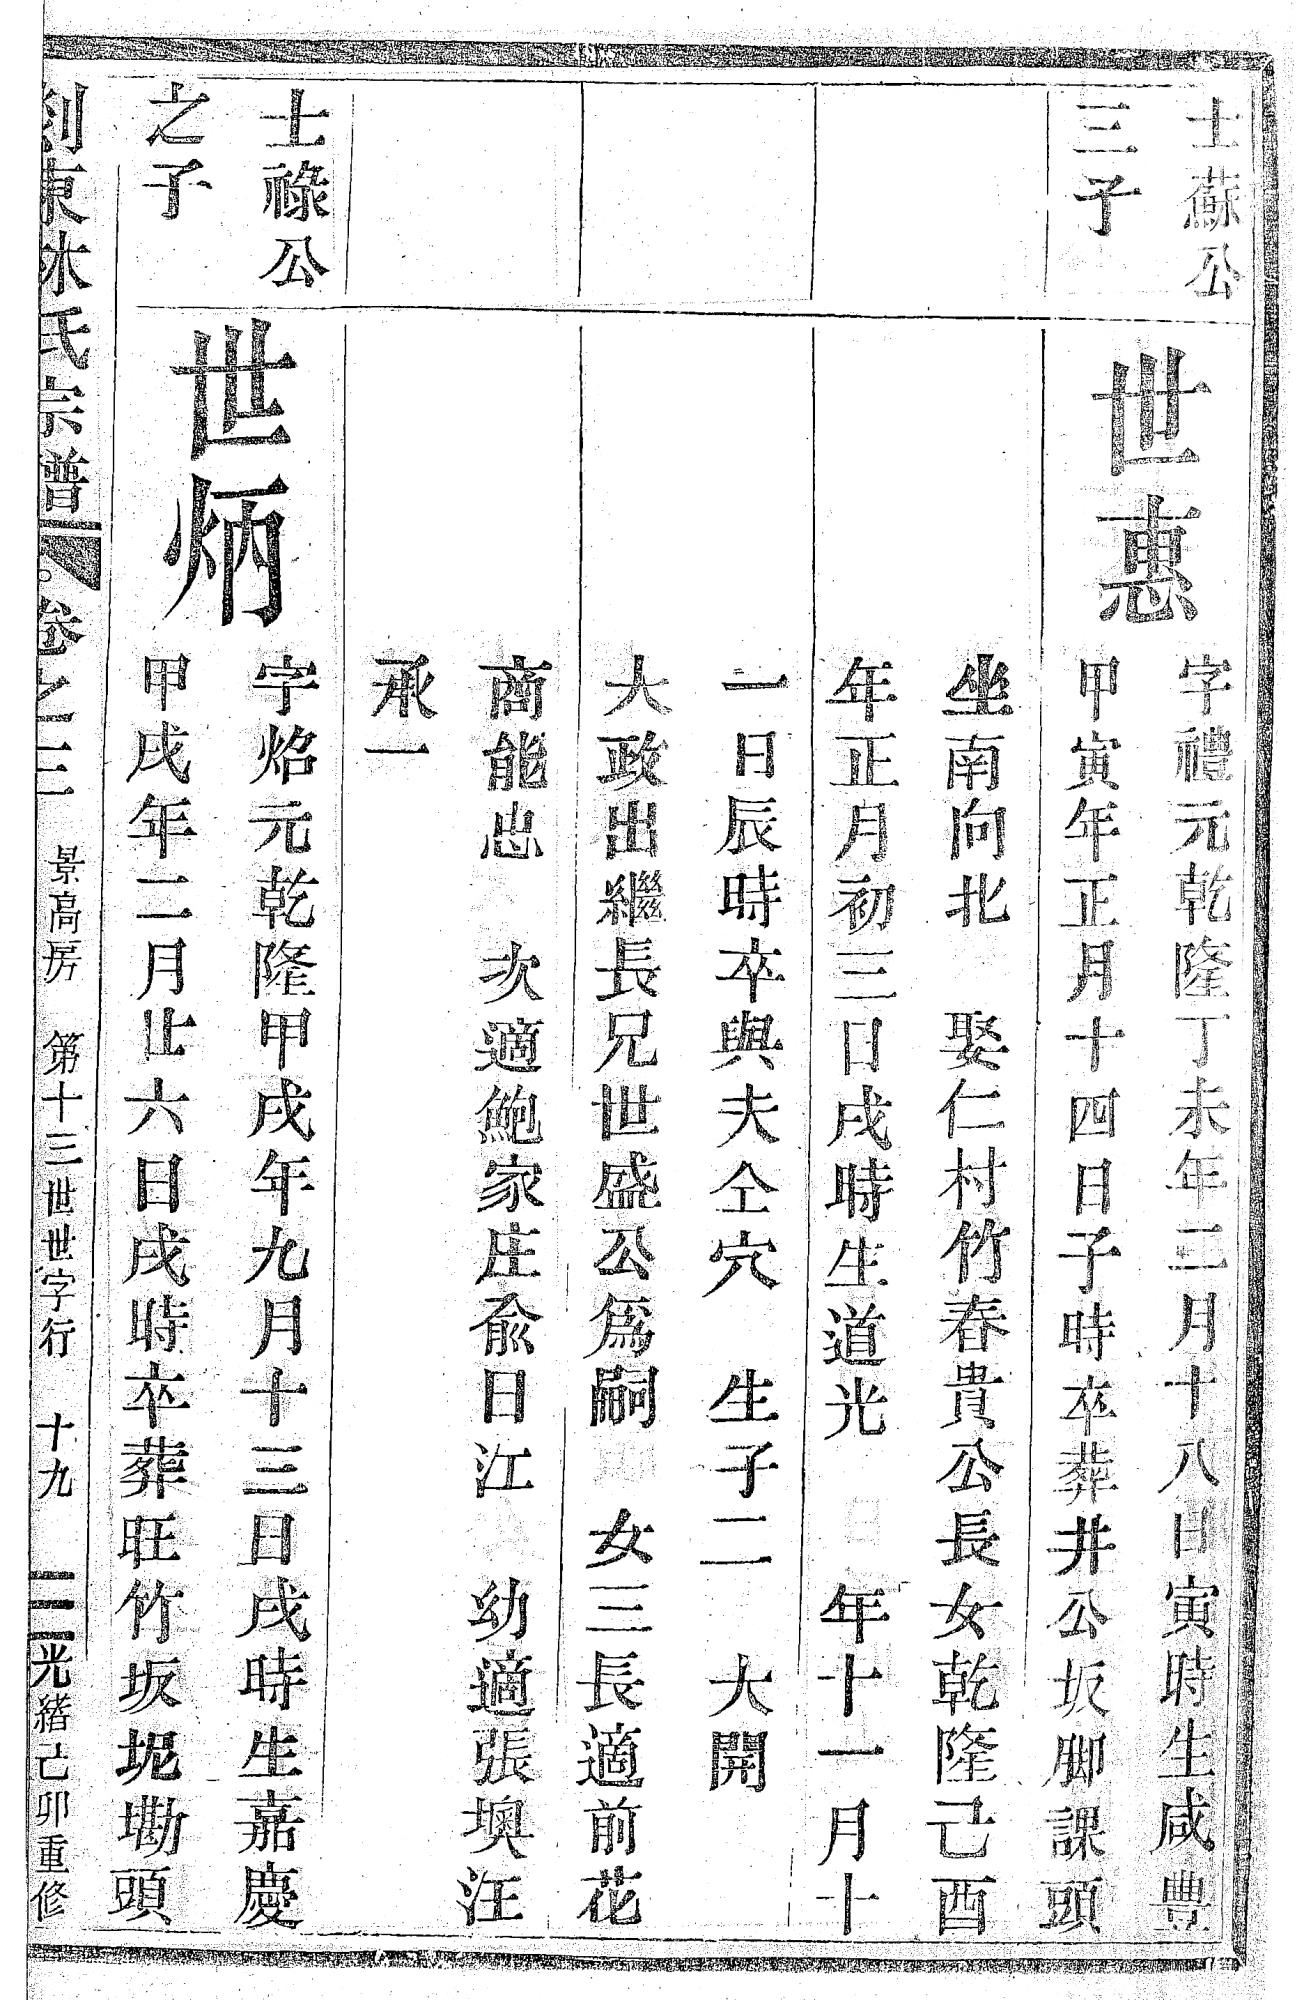 士蘇公
三子
世惠
字禮元乾隆丁未年三月十八日寅時生咸豐
甲寅年正月十四日子時卒葬井公坂脚課頭
坐南向北 娶仁村竹春貴公長女乾隆己酉
年正月初三日戌時生道光 年十一月十
一日辰時卒與夫仝穴 生子二 大開
大政出繼長兄世盛公為嗣 女三長適前花
商能忠 次適鮑家庄俞日江 幼適張墺汪
承一
士祿公
之子
世炳
字焰元乾隆甲戌年九月十三日戌時生嘉慶
甲戌年二月廿六日戌時卒葬旺竹坂坭墈頭
東林氏宗譜 卷之三 景高房 第十三世世字行 十九 光緒己卯重修